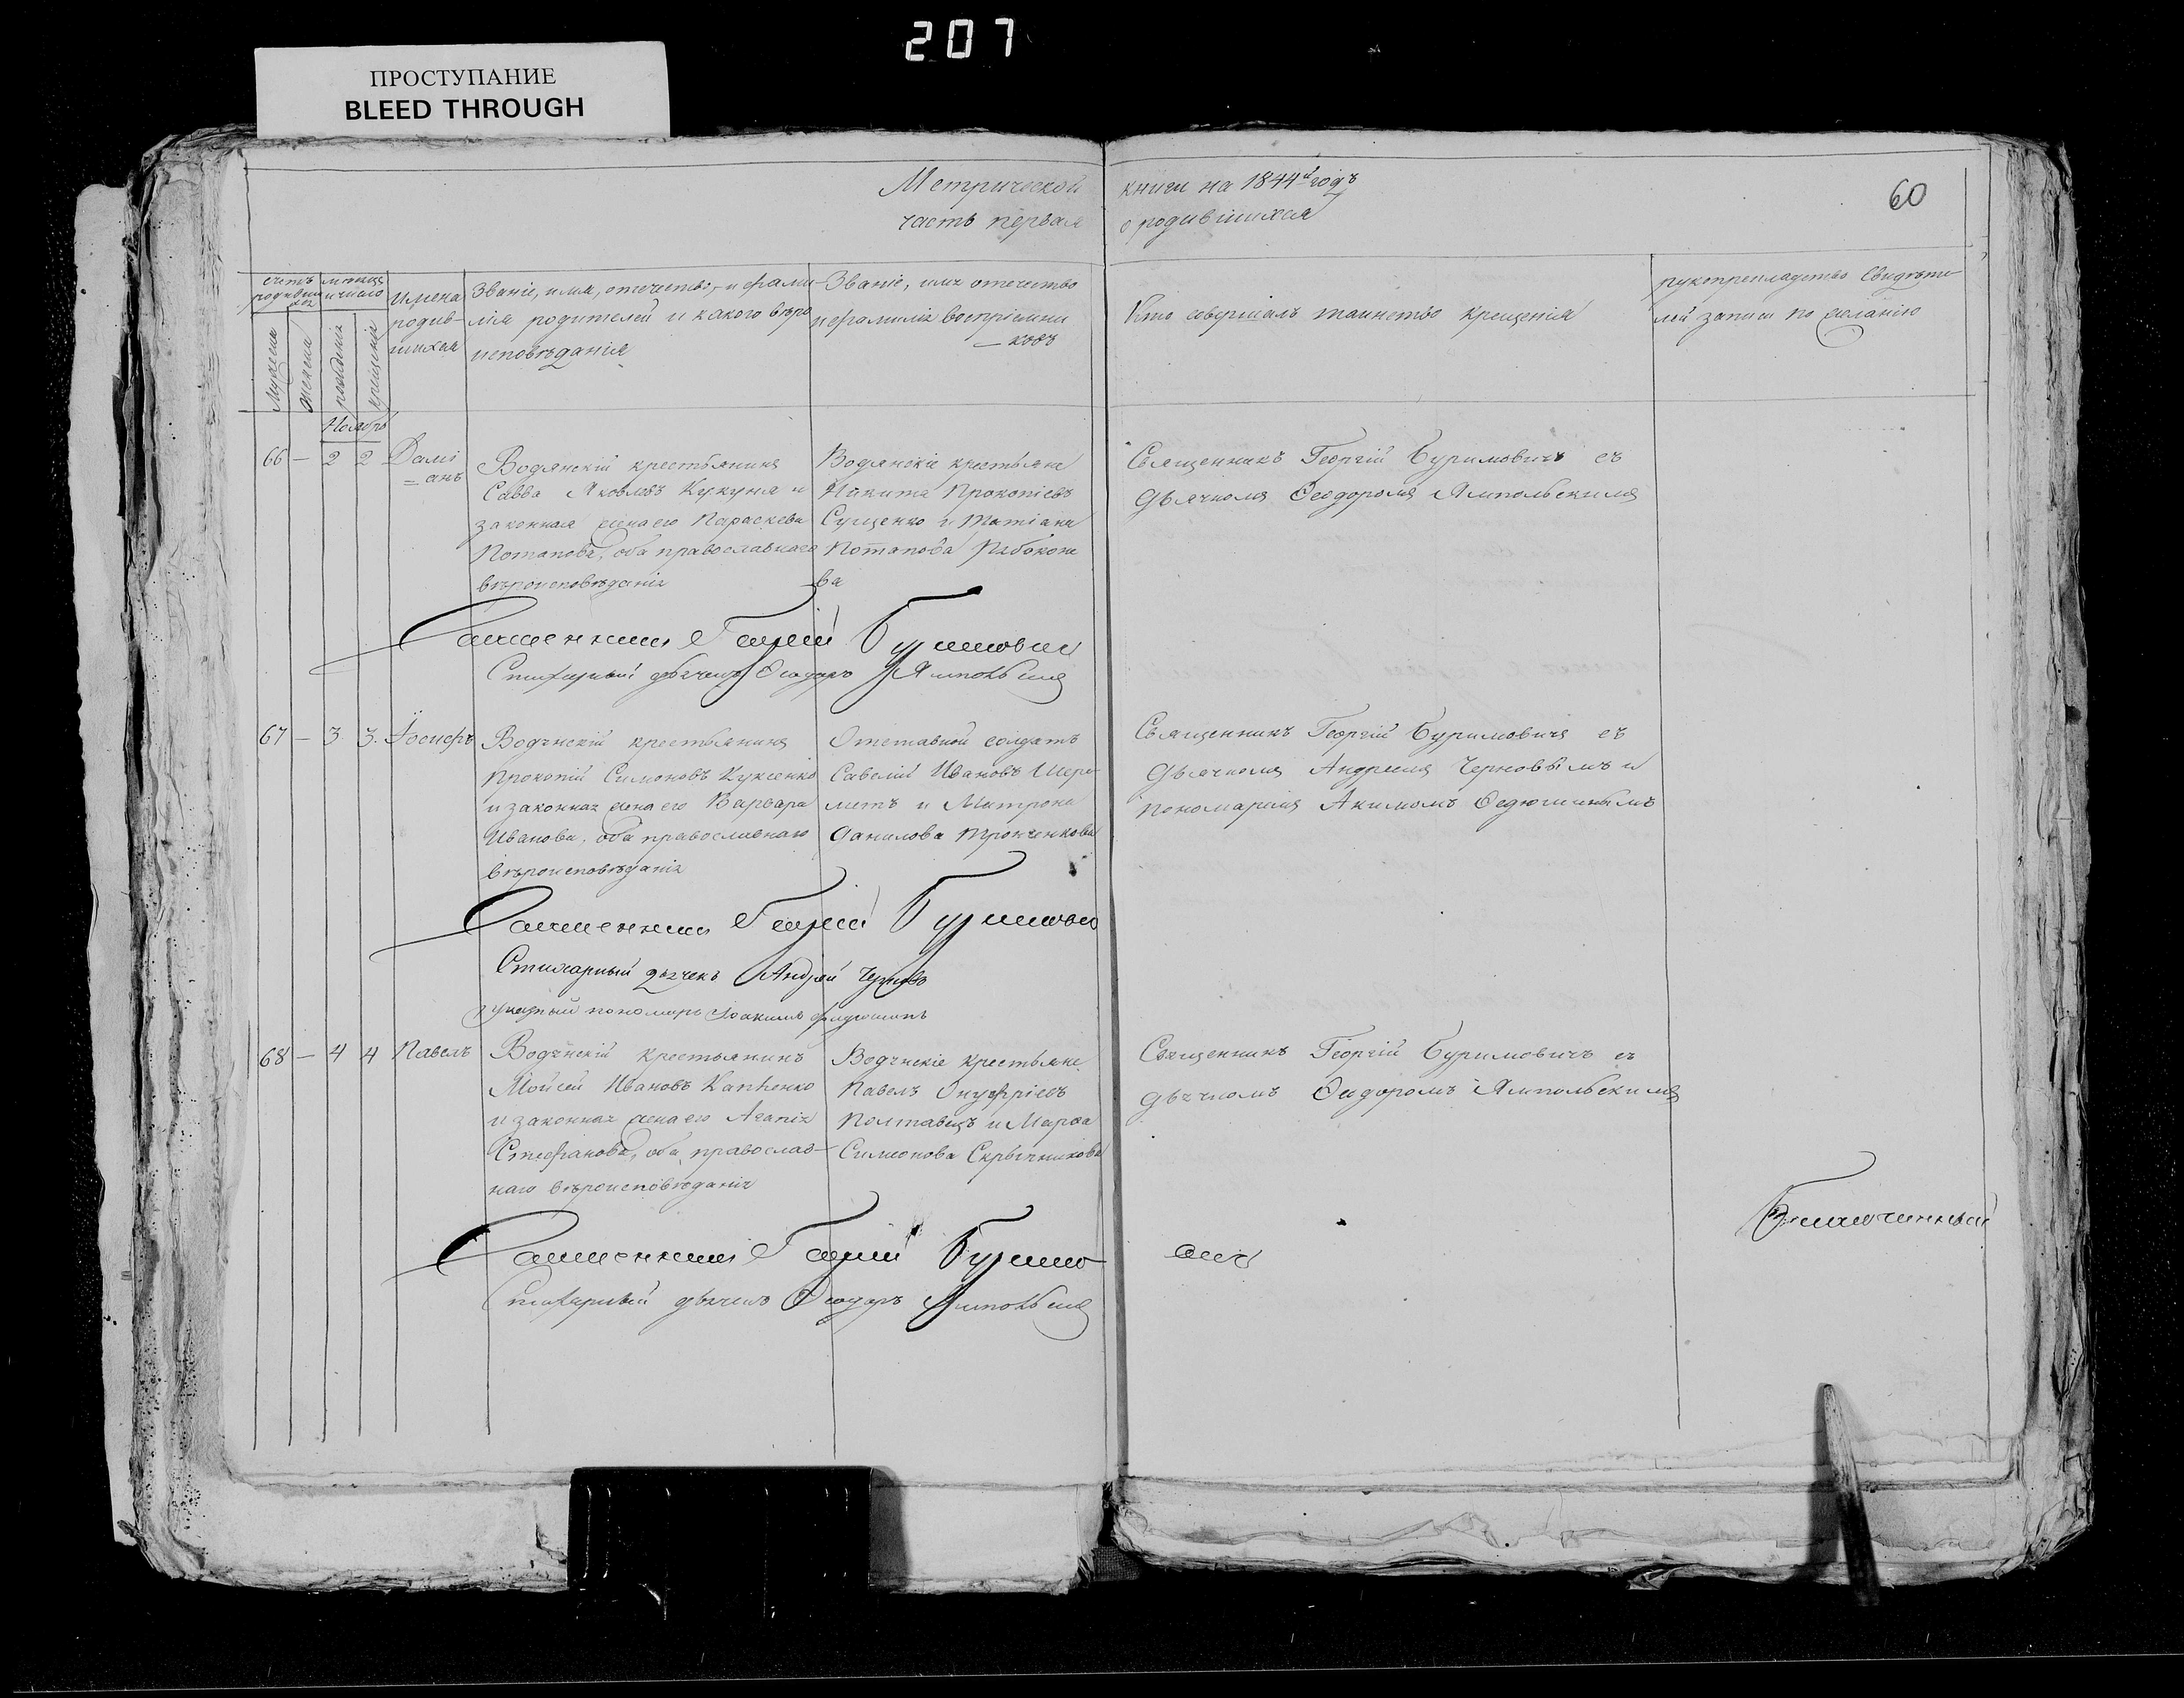 207
ПРОСТУПАНИЕ
BLEED THROUGH
Метрической книги на 1844й годъ
часть первая о родившихся
60
счетъ родившихся
мѣсяцъ и число
мужеска
женска
рожденія
крещенія
Имена
родив-
шихся
Званіе, имя, отечество, и фами-
лія родителей и какого вѣро
исповѣданія
Званіе, имя отечество
и фамилія воспріемни
— ковъ
Кто совершалъ таинство крещенія
рукоприкладство свидѣте-
лей записи по желанію
Ноябрь
66 — 2 2 Дамі
= анъ
Водянскій крестьянинъ
Савва Яковлевъ Кукуня и
законная жена его Параскева
Потапова, оба православнаго
вѣроисповѣданія
Водянскіе крестьяне
Никита Прокопіевъ
Сущенко и Татіана
Потапова Рябоконе
ва
Священникъ Георгій Буримовичъ съ
дьячкомъ Ѳеодоромъ Ямпольскимъ
Священникъ Георгій Буримовичъ
Стихарный дьячекъ Ѳеодоръ Ямпольскій
67 — 3 3. Іосифъ
Водянскій крестьянинъ
Прокопій Симоновъ Куксенко
и законная жена его Варвара
Иванова, оба православнаго
вѣроисповѣданія
Отставной солдатъ
Савелій Ивановъ Шере-
метъ и Матрона
Данилова Тронченкова
Священникъ Георгій Буримовичъ съ
дьячкомъ Андреемъ Черновымъ и
пономаремъ Акимомъ Ѳедюшинымъ
Священникъ Георгій Буримовичъ
Стихарный дьячекъ Андрей Черновъ
Указный пономарь Іоакимъ Федюшинъ
68 — 4 4 Павелъ
Водянскій крестьянинъ
Мойсей Ивановъ Каппенко
и законная жена его Агапія
Стефанова, оба православ-
наго вѣроисповѣданія
Водянскіе крестьяне
Павелъ Онуфріевъ
Полтавецъ и Марѳа
Симеонова Скрыпникова
Священникъ Георгій Буримовичъ съ
дьячкомъ Ѳеодоромъ Ямпольскимъ
Священникъ Георгій Буримо-
вичъ
Стихарный дьячекъ Ѳеодоръ Ямпольскій
Благочинный